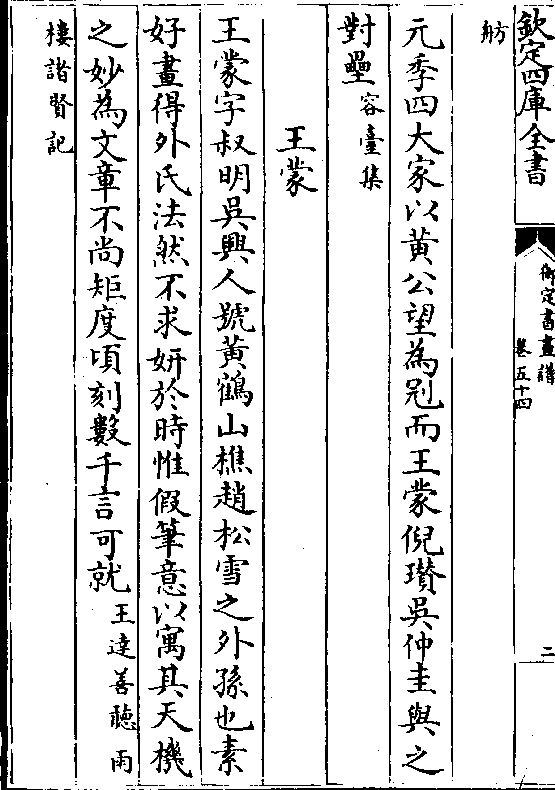 欽定四庫全書
御定書畫譜
卷五十四
二
舫
元季四大家以黃公望為冠而王蒙倪瓚吳仲圭與之
對壘容臺集
王蒙
王蒙字叔明吳興人號黃鶴山樵趙松雪之外孫也素
好畫得外氏法然不求妍於時惟假筆意以寓其天機
之妙為文章不尚矩度頃刻數千言可就王達善聽雨
樓諸賢記